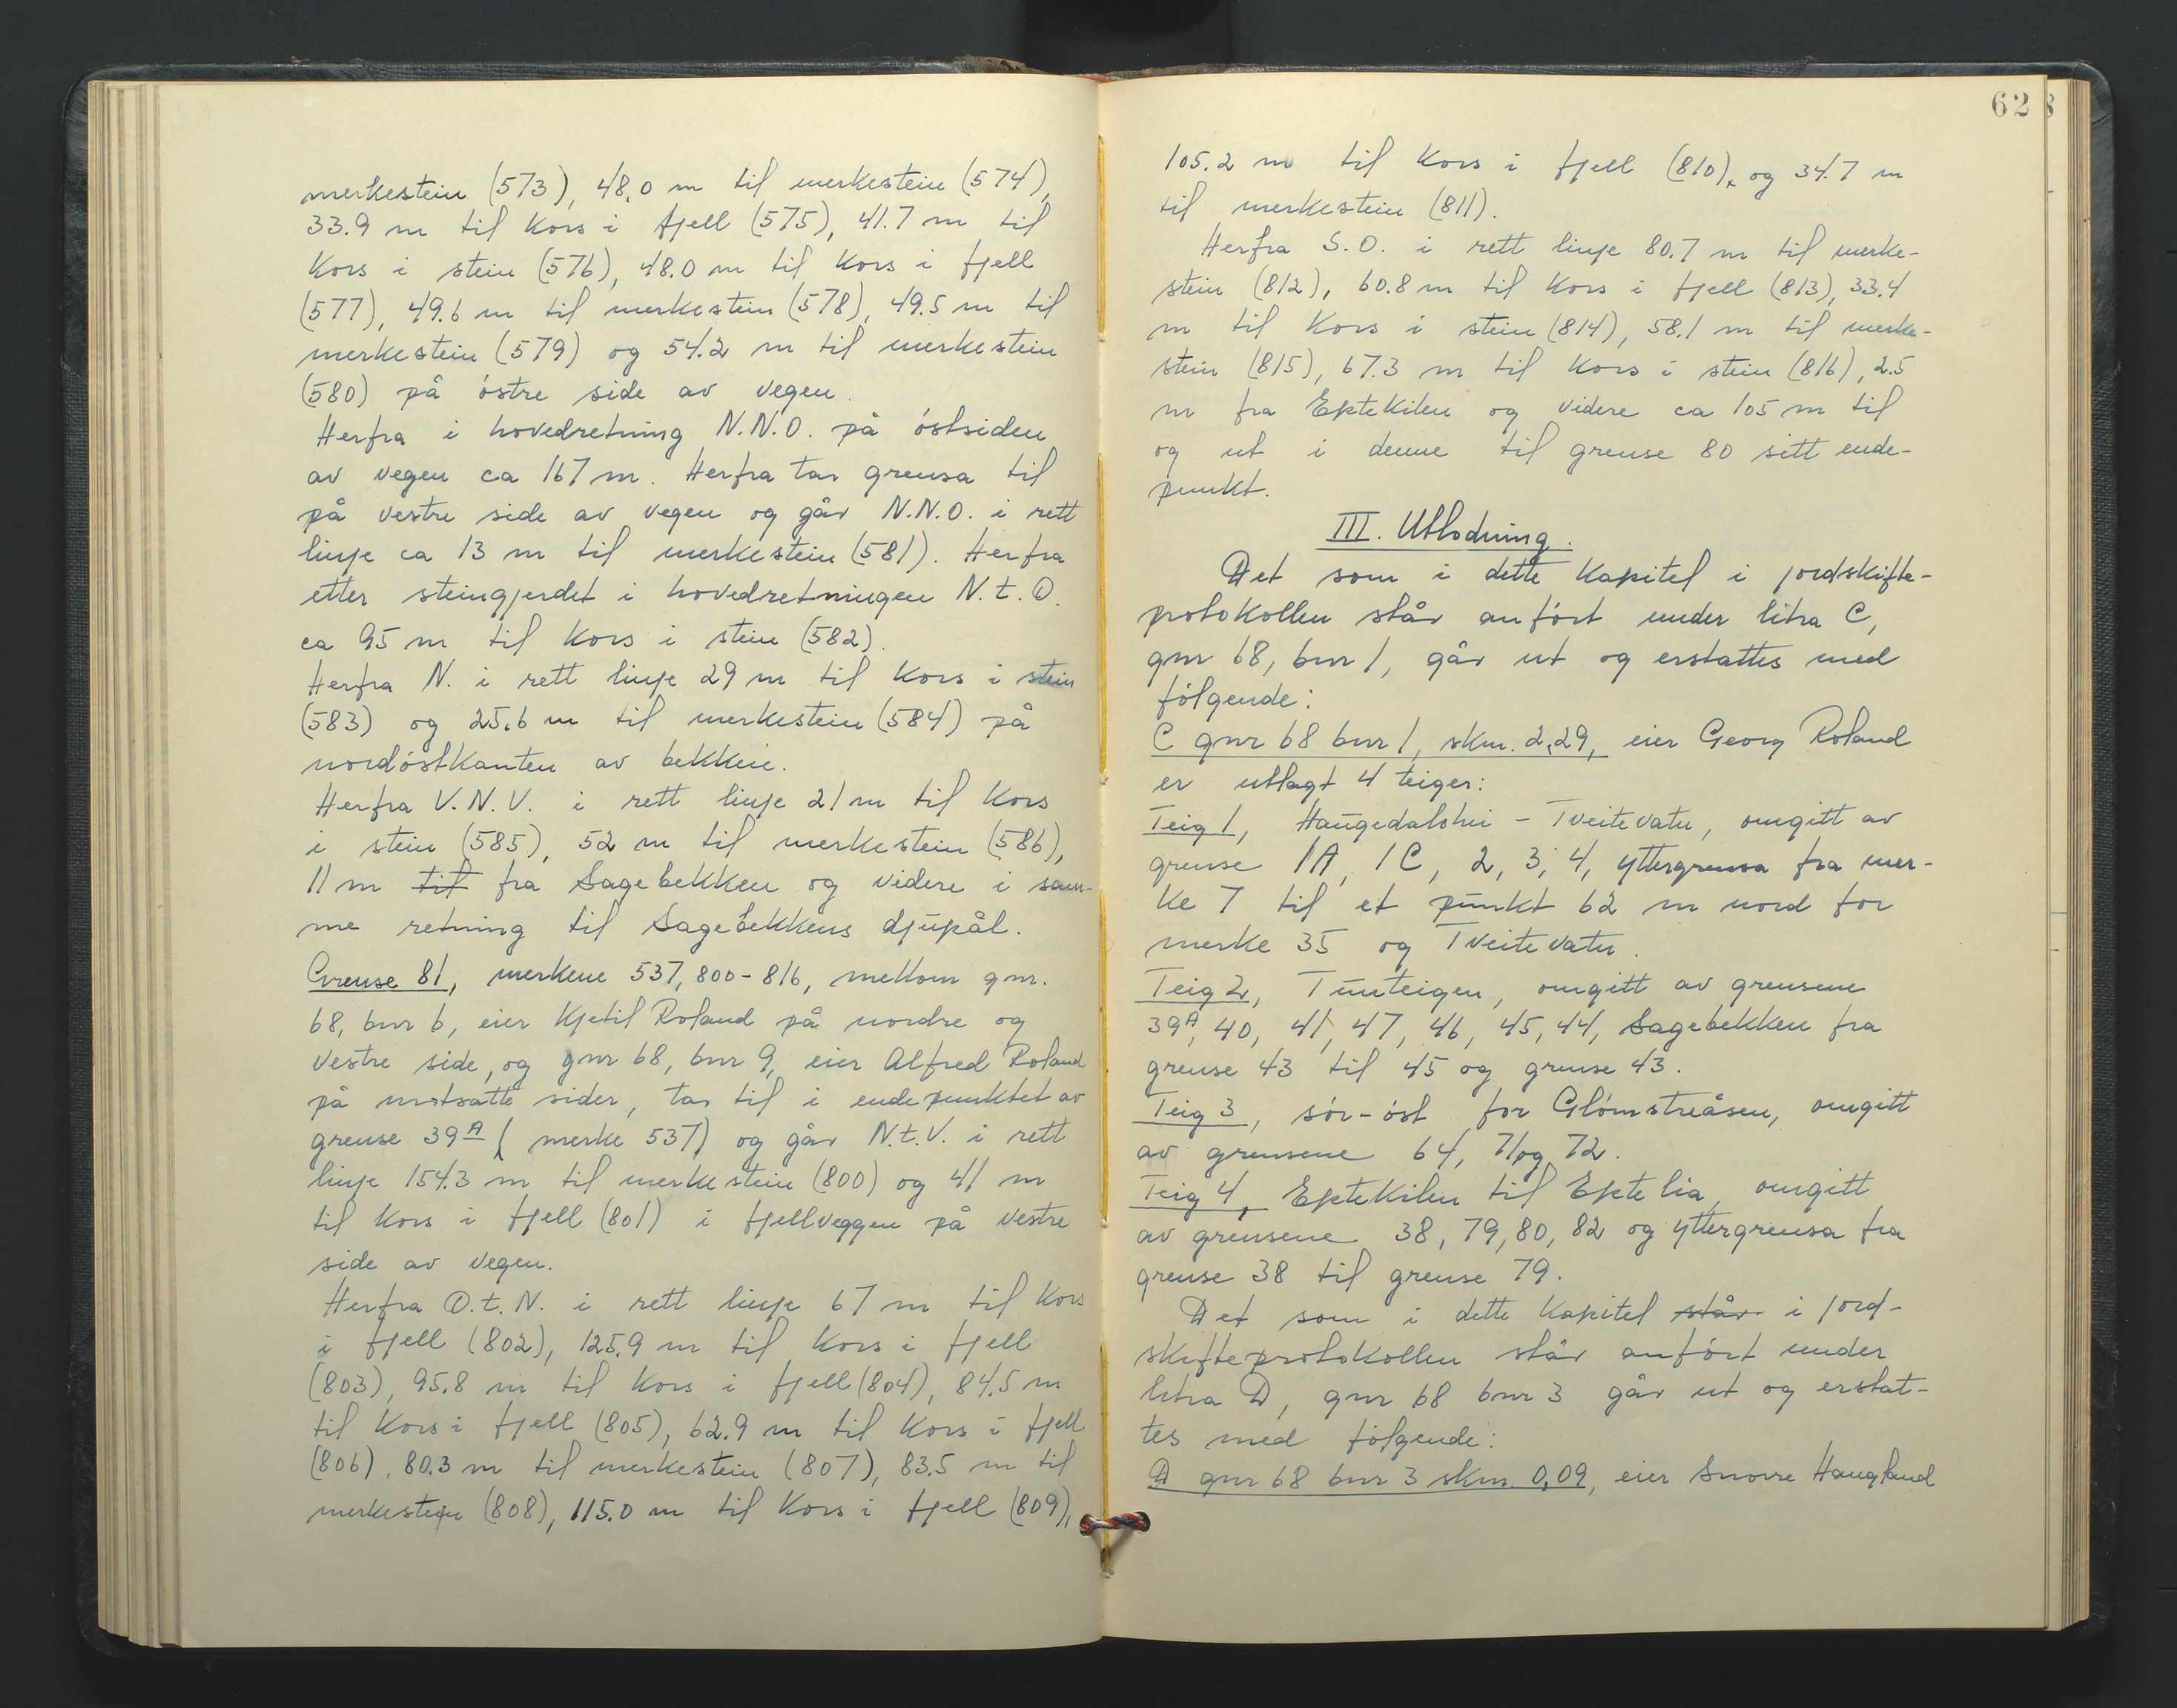 merkestein (573), 48.0 m til merkestein (574),
33.9 m til kors i fjell (575), 41.7 m til
kors i stein (576), 48.0 m til kors i fjell
(577), 49.6 m til merkestein (578), 49.5 m til
merkestein (579) og 54.2 m til merkestein
(580) på östre side av vegen.
Herfra i hovedretning N.N.O. på östsiden
av vegen ca 167 m. Herfra tar grensa til
på vestre side av vegen og går N.N.O. i rett
linje ca 13 m til merkestein (581). Herfra
etter steingjerdet i hovedretningen N.t.O.
ca 95 m til kors i stein (582).
Herfra N. i rett linje 29 m til kors i stein
(583) og 25.6 m til merkestein (584) på
nordöstkanten av bekken.
Herfra V.N.V. i rett linje 21 m til kors
i stein (585), 52 m til merkestein (586),
11 m til fra Sagebekken og videre i sam-
me retning til Sagebekkens djupål.
Grense 81, merkene 537, 800-816, mellom gnr.
68, bnr 6, eier Kjetil Roland på nordre og
vestre side, og gnr 68, bnr 9, eier Alfred Roland
på motsatte sider, tar til i endepunktet av
grense 39A (merke 537) og går N.t.V. i rett
linje 154.3 m til merkestein (800) og 41 m
til kors i fjell (801) i fjellveggen på vestre
side av vegen.
Herfra O.t.N. i rett linje 67 m til kors
i fjell (802), 125.9 m til kors i fjell
(803), 95.8 m til kors i fjell (804), 84.5 m
til kors i fjell (805), 62.9 m til kors i fjell
(806), 80.3 m til merkestein (807), 83.5 m til
merkestein (808), 115.0 m til kors i fjell (809),
62
105.2 m til kors i fjell (810), og 34.7 m
til merkestein (811).
Herfra S.O. i rett linje 80.7 m til merke-
stein (812), 60.8 m til kors i fjell (813), 33.4
m til kors i stein (814), 58.1 m til merke-
stein (815), 67.3 m til kors i stein (816), 2.5
m fra Eptekilen og videre ca 105 m til
og ut i denne til grense 80 sitt ende-
punkt.
III. Utlodning.
Det som i dette kapitel i jordskifte-
protokollen står anfört under litra C,
gnr 68, bnr 1, går ut og erstattes med
fölgende:
C gnr 68 bnr 1, skm. 2,29, eier Georg Roland
er utlagt 4 teiger:
Teig 1, Haugedalshei - Tveitevatn, omgitt av
grense 1A, 1C, 2, 3, 4, yttergrensa fra mer-
ke 7 til et punkt 62 m nord for
merke 35 og Tveitevatn.
Teig 2, Tunteigen, omgitt av grensene
39A, 40, 41, 47, 46, 45, 44, Sagebekken fra
grense 43 til 45 og grense 43.
Teig 3, sör-öst for Glömstreåsen, omgitt
av grensene 64, 71 og 72.
Teig 4, Eptekilen til Eptelia, omgitt
av grensene 38, 79, 80, 82 og yttergrensa fra
grense 38 til grense 79.
Det som i dette kapitel står i jord-
skifteprotokollen står anfört under
litra D, gnr 68 bnr 3 går ut og erstat-
tes med fölgende:
D gnr 68 bnr 3 skm. 0,09, eier Snorre Haugland